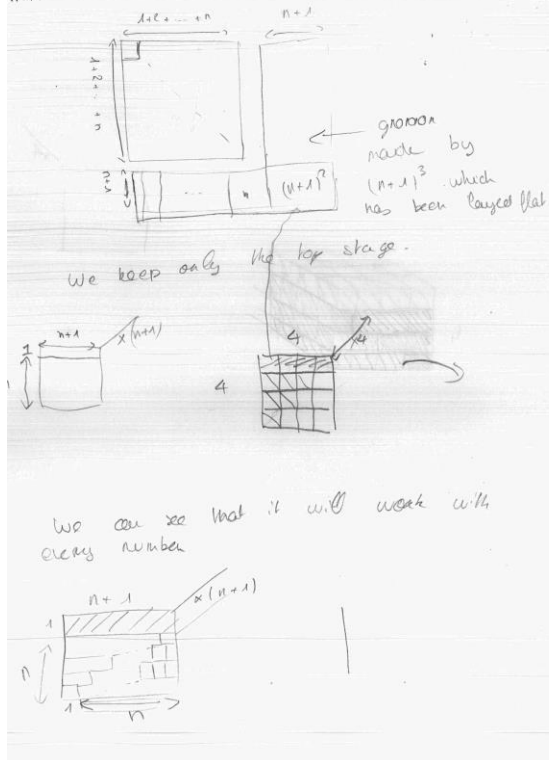 1+2+ ... +n
n+1
1+2+...+n
n+1
...
(n+1)²
gnomon
made by
(n+1)³ which
has been layed flat
We keep only the top stage.
n+1
x(n+1)
1
4
x4
4
We can see that it will work with
every number
n+1
x(n+1)
1
n
1
n